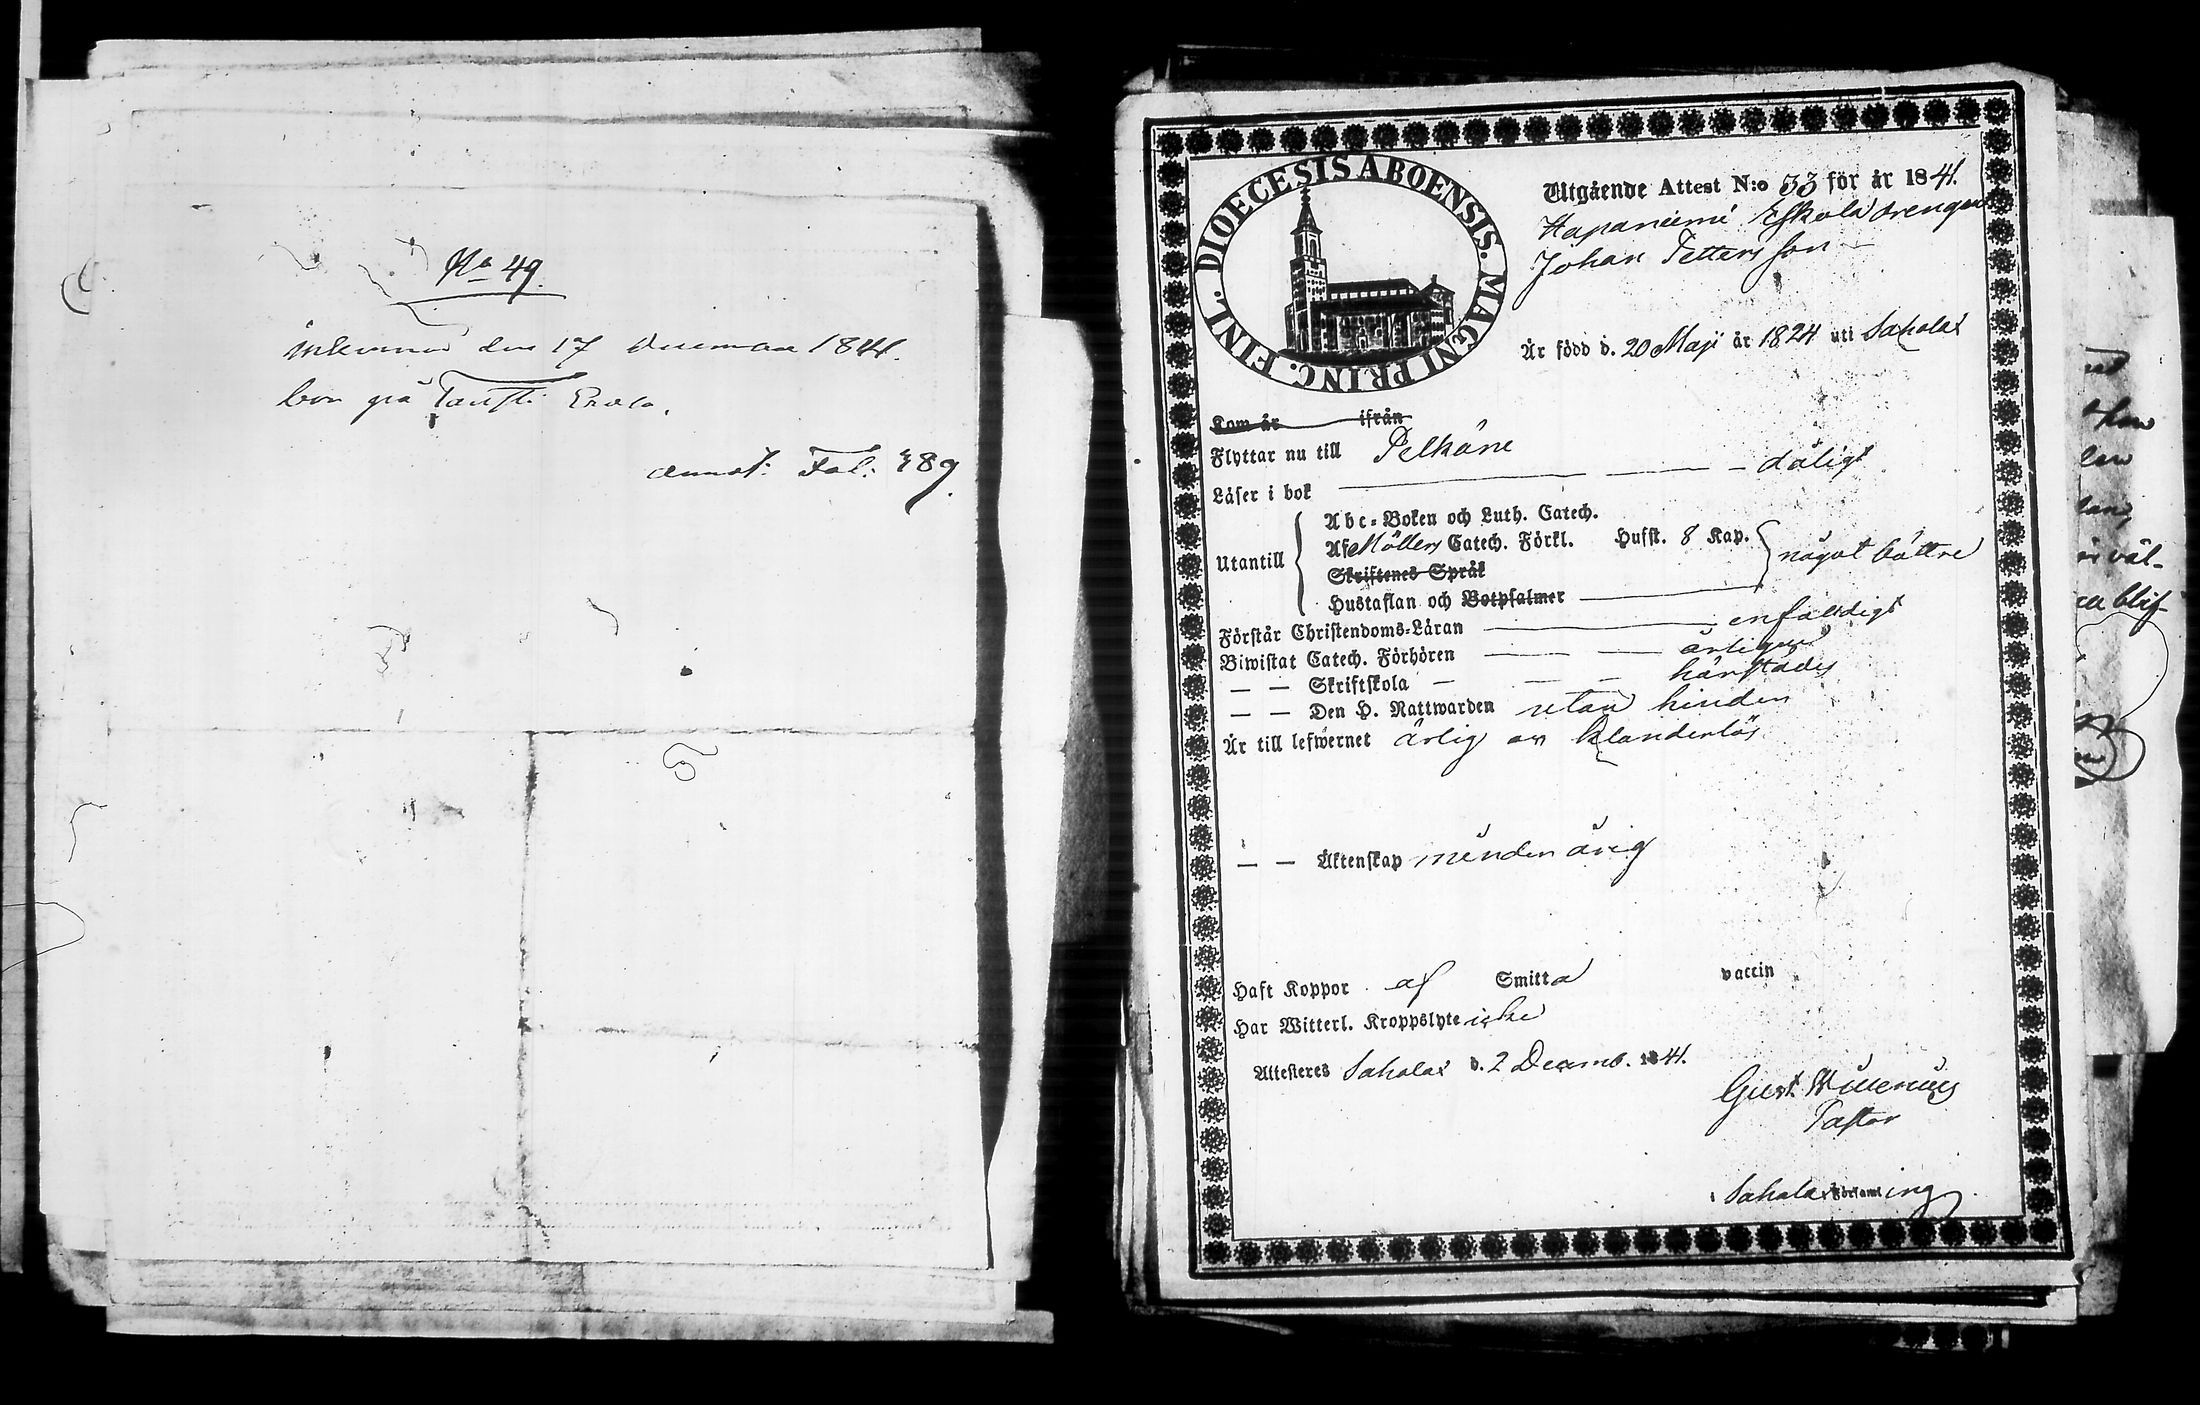 No 49.
inkommen den 17 December 1841.
bor på Eräla.
annot: Fol: 389.
DIOECESIS ABOENSIS. MAGNI PRINC. FINL.
Utgående Attest N:o 33 för år 1841.
Hapaniemi Eskola drengen
Johan Petterson
Är född d. 20 Maji år 1824 uti Sahalax
Kom år ifrån
Flyttar nu till Pelkäne
Läser i bok — — — dåligt
Utantill
Abc-Boken och Luth. Catech.
Af Möllers Catech. Förkl. Hufst. 8 Kap.
Skriftenes Språk
Hustaflan och Botpsalmer
något bättre
Förstår Christendoms-Läran — enfaldigt
Biwistat Catech. Förhören — — årligen
— — Skriftskola — — — härstädes
— — Den H. Nattwarden utan hinder
Är till lefwernet ärlig och klanderlös
— — Äktenskap minderårig
Haft Koppor af Smitta vaccin
Har Witterl. Kroppslyte icke
Attesteres Sahalax d. 2 Decemb. 1841.
Gust. Wilenius
Pastor
i Sahalax Församling.